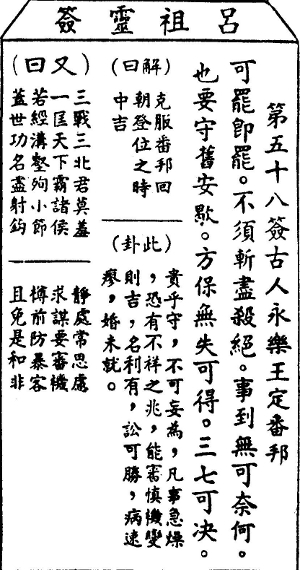 呂祖靈簽
第五十八簽古人永樂王定番邦
可罷即罷。不須斬盡殺絕。事到無可奈何。
也要守舊安歇。方保無失可得。三七可决。
(解曰)
克服番邦回
朝登位之時
中吉
(此卦)
貴乎守，不可妄為，凡事急燥
，恐有不祥之兆，能審慎機變
則吉，名利有，訟可勝，病速
瘳，婚未就。
(又曰)
三戰三北君莫羞
一匡天下霸諸侯
若經溝壑殉小節
蓋世功名盡射鈎
靜處常思慮
求謀要審機
樽前防暴客
且免是和非